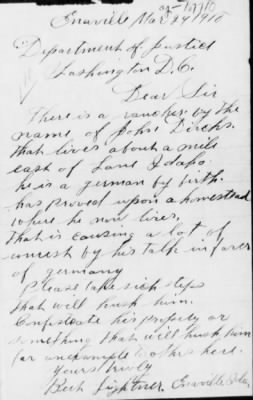 Enaville Mar 24 1918
Department of Justice
Washington D.C.
Dear Sir
There is a rancher by the
name of John Dircks.
that lives about a mile
east of Lane Idaho
he is a german by birth.
has proved upon a homestead
where he now lives.
that is causing a lot of
unrest by his talk in favor
of germany
Please take sich steps
that will hush him.
Confistcate his property or
something that will hush him
for an example to others here.
Yours truly
Bert Lightner, Enaville Ida,